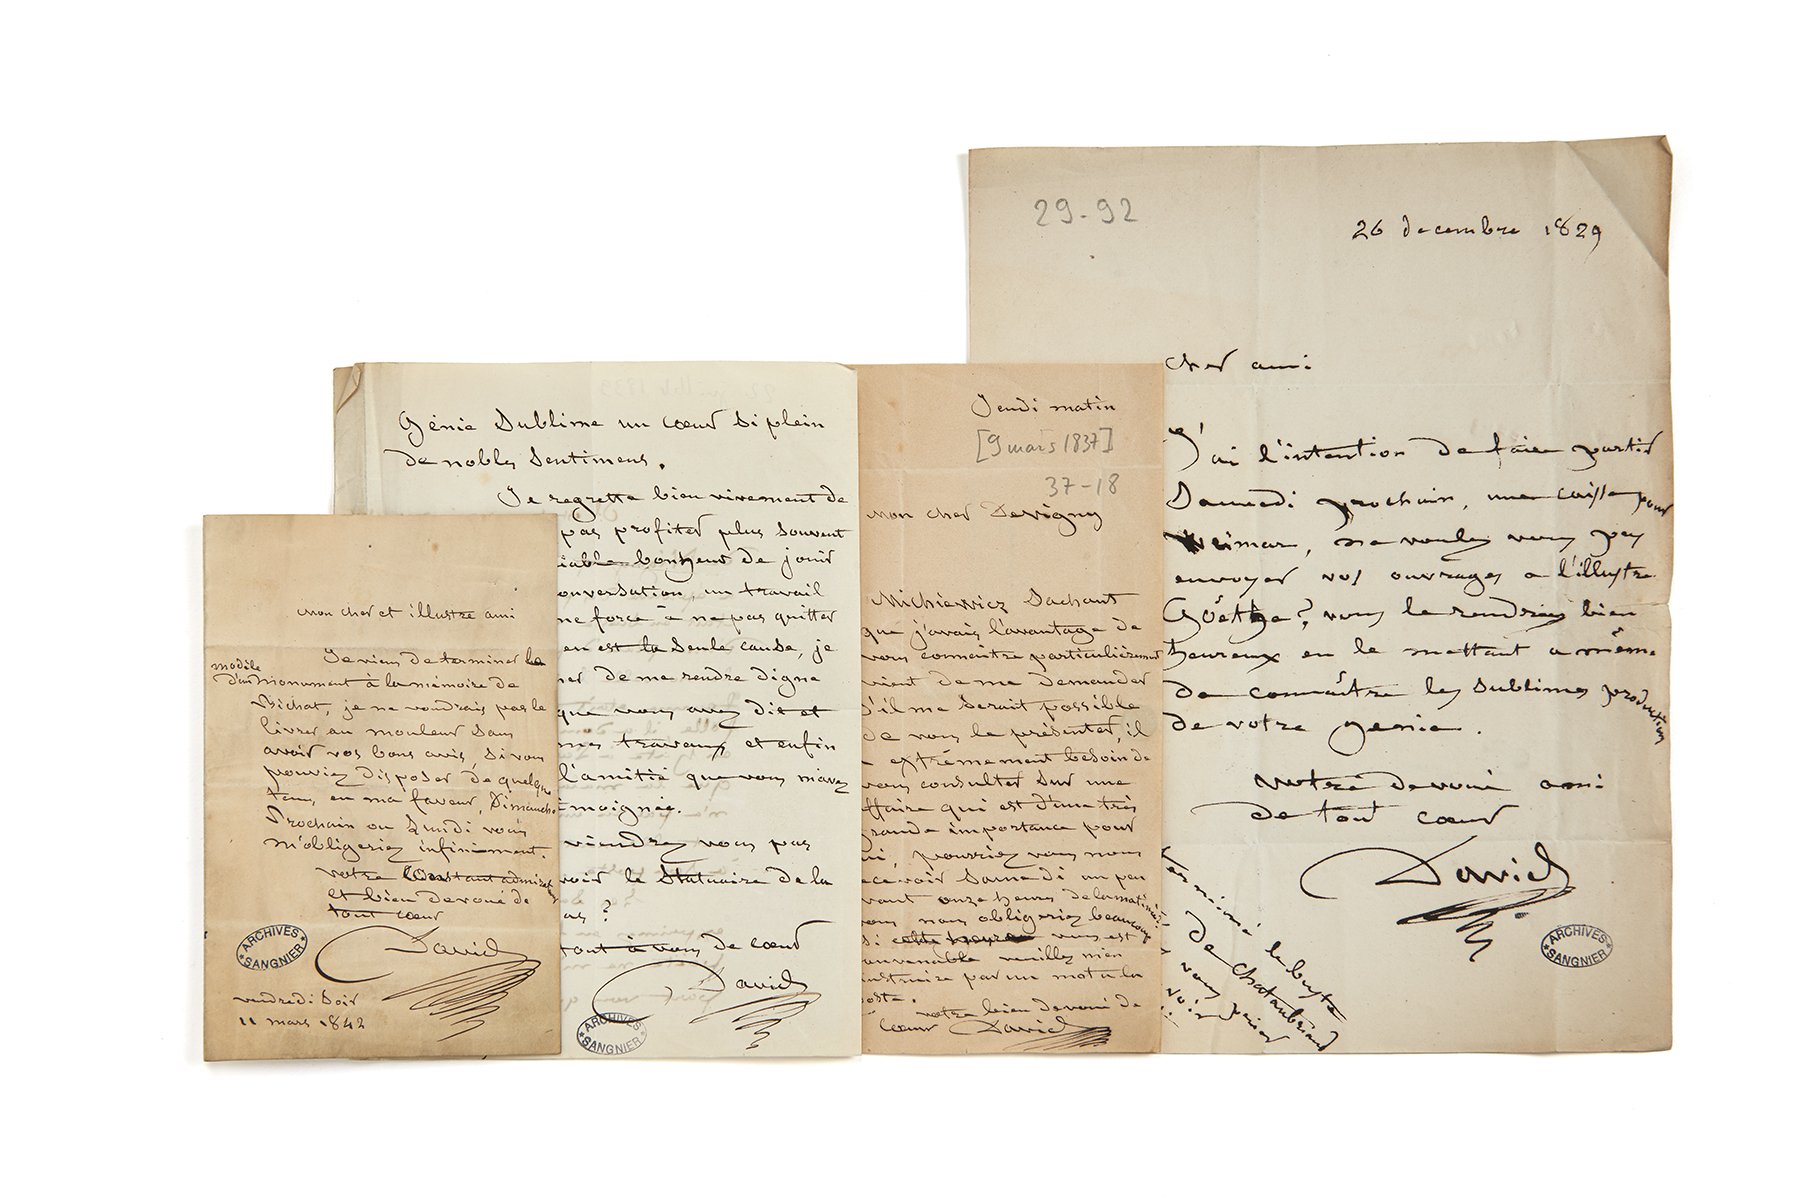 mon cher et illustre ami
Je viens de terminer le
modèle
d'un monument à la mémoire de
Bichat, je ne voudrais pas le
livrer au mouleur sans
avoir vos bons avis, si vous
pouviez disposer de quelque
tems, en ma faveur, Dimanche
Prochain ou Lundi vous
m'obligeriez infiniment.
votre Constant admirateur
et bien devoué de
tout cœur
David
ARCHIVES
SANGNIER
vendredi soir
11 mars 1842
Génie Sublime un cœur si plein
de nobles Sentimens.
Je regrette bien vivement de
pas profiter plus souvent
iable bonheur de jouir
onversation, un travail
me force à ne pas quitter
en est la seule cause, je
her de me rendre digne
que vous avez dit et
mes travaux et enfin
l'amitié que vous m'avez
émoignée.
viendrez vous pas
voir le statuaire de la
as?
tout à vous de cœur
David
ARCHIVES
SANGNIER
Jeudi matin
[9 mars 1837]
37-18
mon cher Devigny
Michiewicz Sachant
que j'avais l'avantage de
vous connaitre particulièrement
vient de me demander
s'il me serait possible
de vous le présenter, il
a extrémement besoin de
vous consulter sur une
affaire qui est d'une très
grande importance pour
lui, pourriez vous nous
recevoir Samedi un peu
avant onze heures de la matinée?
vous nous obligeriez beaucoup
si cette heure vous est
convenable veuillez m'en
instruire par un mot à la
poste.
votre bien devoué de
cœur David
29-92
26 decembre 1829
Cher ami
J'ai l'intention de faire partir
Samedi prochain, une caisse pour
Weimar, ne voulez vous pas
envoyer vos ouvrages a l'illustre
Goëthe? vous le rendriez bien
heureux en le mettant a même
de connaître les sublimes production
de votre genie.
Votre devoué ami
de tout cœur
David
ARCHIVES
SANGNIER
terminé le buste
de Chateaubriand
vous prier
voir